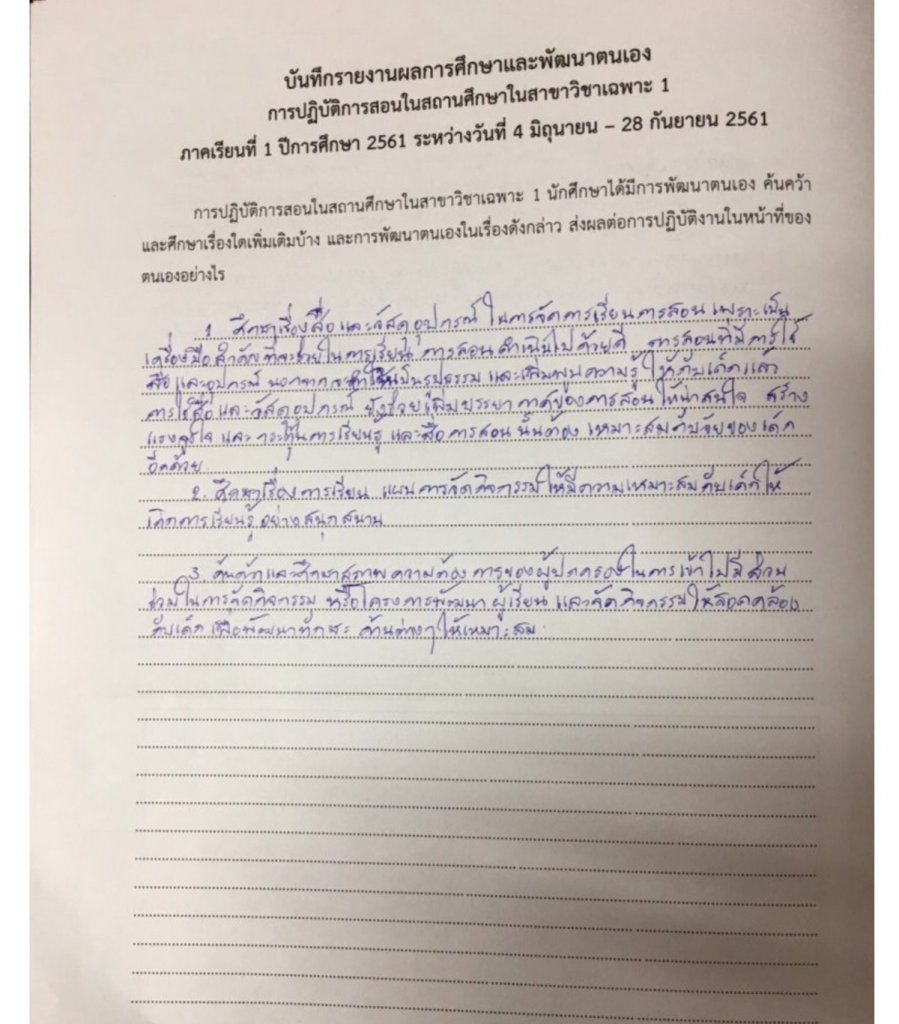 บันทึกรายงานผลการศึกษาและพัฒนาตนเอง
การปฏิบัติการสอนในสถานศึกษาในสาขาวิชาเฉพาะ 1
ภาคเรียนที่ 1 ปีการศึกษา 2561 ระหว่างวันที่ 4 มิถุนายน – 28 กันยายน 2561
การปฏิบัติการสอนในสถานศึกษาในสาขาวิชาเฉพาะ 1 นักศึกษาได้มีการพัฒนาตนเอง ค้นคว้า
และศึกษาเรื่องใดเพิ่มเติมบ้าง และการพัฒนาตนเองในเรื่องดังกล่าว ส่งผลต่อการปฏิบัติงานในหน้าที่ของ
ตนเองอย่างไร
1. ศึกษาเรื่องสื่อ และวัสดุอุปกรณ์ ในการจัดการเรียนการสอน เพราะเป็น
เครื่องมือสำคัญที่จะช่วยในการเรียน การสอนดำเนินไปด้วยดี การสอนที่มีการใช้
สื่อ และอุปกรณ์ นอกจากจะทำให้เป็นรูปธรรม และเพิ่มพูนความรู้ ให้กับเด็กแล้ว
การใช้สื่อและวัสดุอุปกรณ์ ยังช่วยเพิ่มบรรยากาศของการสอน ให้น่าสนใจ สร้าง
แรงจูงใจ และกระตุ้นการเรียนรู้ และสื่อการสอนนั้นต้อง เหมาะสมกับวัยของเด็ก
อีกด้วย
2. ศึกษาเรื่องการเขียน แผนการจัดกิจกรรมให้มีความเหมาะสมกับเด็กให้
เกิดการเรียนรู้อย่างสนุกสนาน
3. ค้นคว้าและศึกษาสภาพความต้องการของผู้ปกครองในการเข้าไปมีส่วน
ร่วมในการจัดกิจกรรม หรือโครงการพัฒนา ผู้เรียน และจัดกิจกรรมให้สอดคล้อง
กับเด็ก เพื่อพัฒนาทักษะ ด้านต่างๆ ให้เหมาะสม